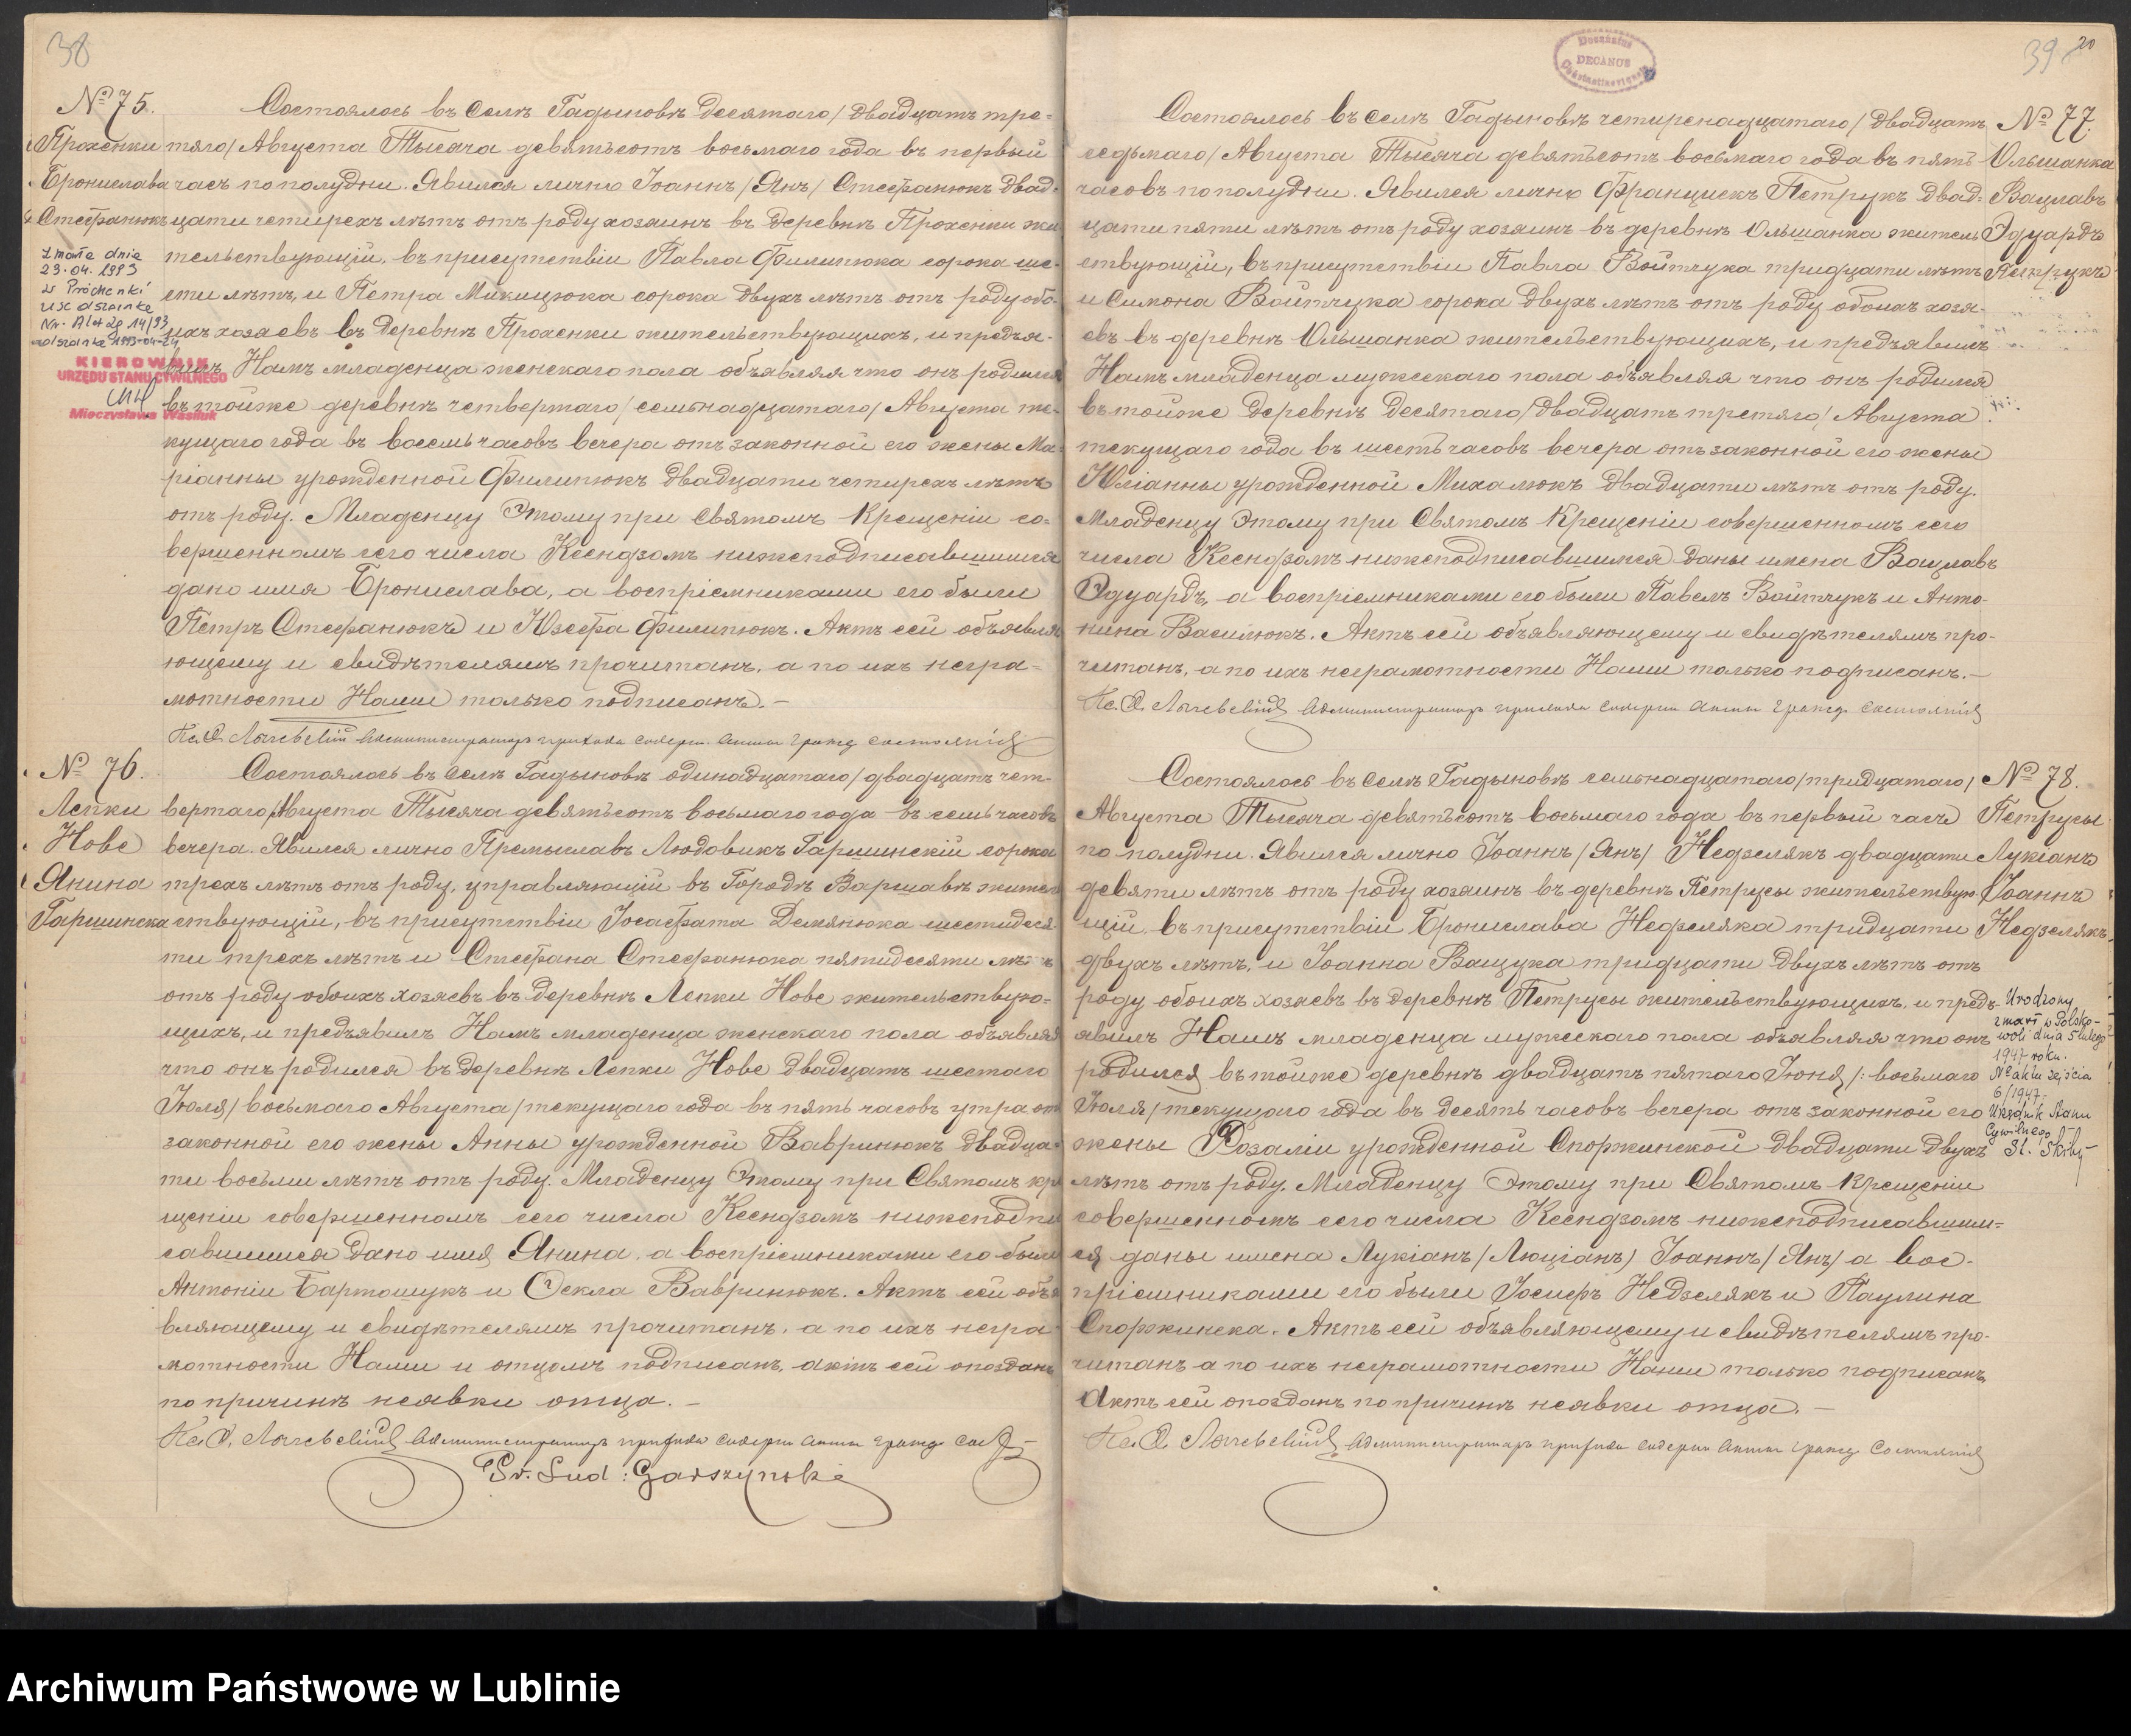 38
№ 75.
Прохенки
Бронислава
Стефанюкъ
zmarła dnia
23.04.1993
w Próchenki
USC Olszanka
Nr. Aktu 14/93
Olszanka 1993-04-24
KIEROWNIK
URZĘDU STANU CYWILNEGO
Mieczysława Wasiluk
Состоялось въ селѣ Гадыновѣ десятаго/двадцать тре-
тяго/Августа Тысяча девятьсотъ восьмаго года въ первый
часъ пополудни. Явился лично Іоаннъ/Янъ/Стефанюкъ двад-
цати четырехъ лѣтъ отъ роду хозяинъ въ деревнѣ Прохенки жи
тельствующій, въ присутствіи Павла Филипюка сорока ше-
сти лѣтъ, и Петра Микицюка сорока двухъ лѣтъ отъ роду обо-
ихъ хозяевъ въ деревнѣ Прохенки жительствующихъ, и предъя-
вилъ Намъ младенца женскаго пола объявляя что онъ родился
въ тойже деревнѣ четвертаго/семьнадцатаго/Августа те-
кущаго года въ восемь часовъ вечера отъ законной его жены Ма-
ріанны урожденной Филипюкъ двадцати четырехъ лѣтъ
отъ роду. Младенцу Этому при Святомъ Крещеніи со-
вершенномъ сего числа Ксендзомъ нижеподписавшимся
дано имя Бронислава, а воспріемниками его были
Петръ Стефанюкъ и Юзефа Филипюкъ. Актъ сей объявля
ющему и свидѣтелямъ прочитанъ, а по ихъ негра-
мотности Нами только подписанъ.—
Администраторъ прихода содерж. Акты гражд. состоянія
№ 76.
Лепки
Нове
Янина
Гаршинска
Состоялось въ селѣ Гадыновѣ одинадцатаго/двадцать чет-
вертаго/Августа Тысяча девятьсотъ восьмаго года въ семь часовъ
вечера. Явился лично Премыславъ Людовикъ Гаршинскій сорока
трехъ лѣтъ отъ роду, управляющій въ Городѣ Варшавѣ жител
ствующій, въ присутствіи Іосафата Демянюка шестидеся-
ти трехъ лѣтъ и Стефана Стефанюка пятидесяти лѣтъ
отъ роду обоихъ хозяевъ въ деревнѣ Лепки Нове жительствую-
щихъ, и предъявилъ Намъ младенца женскаго пола объявляя
что онъ родился въ деревнѣ Лепки Нове двадцать шестаго
Іюля/восьмаго Августа/текущаго года въ пять часовъ утра от
законной его жены Анны урожденной Вавринюкъ двадца-
ти восьми лѣтъ отъ роду. Младенцу Этому при Святомъ кре
щеніи совершенномъ сего числа Ксендзомъ нижеподпи
савшимся дано имя Янина, а воспріемниками его были
Антоній Бартошукъ и Фекла Вавринюкъ. Актъ сей объя
вляющему и свидѣтелямъ прочитанъ, а по ихъ негра-
мотности Нами и отцомъ подписанъ, актъ сей опозданъ
по причинѣ неявки отца.—
Администраторъ прихода содерж. Акты гражд.
Pr. Lud: Garszyński
39
20
DECANUS
№ 77.
Ольшанка
Вацлавъ
Эдуардъ
Петрукъ
Состоялось въ селѣ Гадыновѣ четыренадцатаго/двадцать
седьмаго/Августа Тысяча девятьсотъ восьмаго года въ пять
часовъ пополудни. Явился лично Францискъ Петрукъ двад-
цати пяти лѣтъ отъ роду хозяинъ въ деревнѣ Ольшанка житель
ствующій, въ присутствіи Павла Войтчука тридцати лѣтъ
и Симона Войтчука сорока двухъ лѣтъ отъ роду обоихъ хозя-
евъ въ деревнѣ Ольшанка жительствующихъ, и предъявилъ
Намъ младенца мужескаго пола объявляя что онъ родился
въ тойже деревнѣ десятаго/двадцать третяго/Августа
текущаго года въ шесть часовъ вечера отъ законной его жены
Юліанны урожденной Михалюкъ двадцати лѣтъ отъ роду.
Младенцу Этому при Святомъ Крещеніи совершенномъ сего
числа Ксендзомъ нижеподписавшимся даны имена Вацлавъ
Эдуардъ, а воспріемниками его были Павелъ Войтчукъ и Анто-
нина Василюкъ. Актъ сей объявляющему и свидѣтелямъ про-
читанъ, а по ихъ неграмотности Нами только подписанъ.—
Администраторъ прихода содерж. Акты гражд. состоянія
№ 78.
Петрусы
Лукіанъ
Іоаннъ
Недзелякъ
Urodzony
zmarł w Polsko-
woli dnia 5 lutego
1947 roku.
№ aktu zejścia
6/1947.
Urzędnik Stanu
Cywilnego
St. Skiby
Состоялось въ селѣ Гадыновѣ семьнадцатаго/тридцатаго/
Августа Тысяча девятьсотъ восьмаго года въ первый часъ
по полудни. Явился лично Іоаннъ/Янъ/Недзелякъ двадцати
девяти лѣтъ отъ роду хозяинъ въ деревнѣ Петрусы жительствую-
щій, въ присутствіи Бронислава Недзеляка тридцати
двухъ лѣтъ, и Іоанна Ващука тридцати двухъ лѣтъ отъ
роду обоихъ хозяевъ въ деревнѣ Петрусы жительствующихъ, и предъ-
явилъ Намъ младенца мужескаго пола объявляя что онъ
родился въ тойже деревнѣ двадцать пятаго Іюня/: восьмаго
Іюля/текущаго года въ десять часовъ вечера отъ законной его
жены Розаліи урожденной Споржинской двадцати двухъ
лѣтъ отъ роду. Младенцу Этому при Святомъ Крещеніи
совершенномъ сего числа Ксендзомъ нижеподписавшим-
ся даны имена Лукіанъ/Люціанъ/Іоаннъ/Янъ/а вос-
пріемниками его были Іосифъ Недзелякъ и Паулина
Споржинска. Актъ сей объявляющему и свидѣтелямъ про-
читанъ а по ихъ неграмотности Нами только подписанъ,
Актъ сей опозданъ по причинѣ неявки отца.—
Администраторъ прихода содерж. Акты гражд. состоянія
Archiwum Państwowe w Lublinie